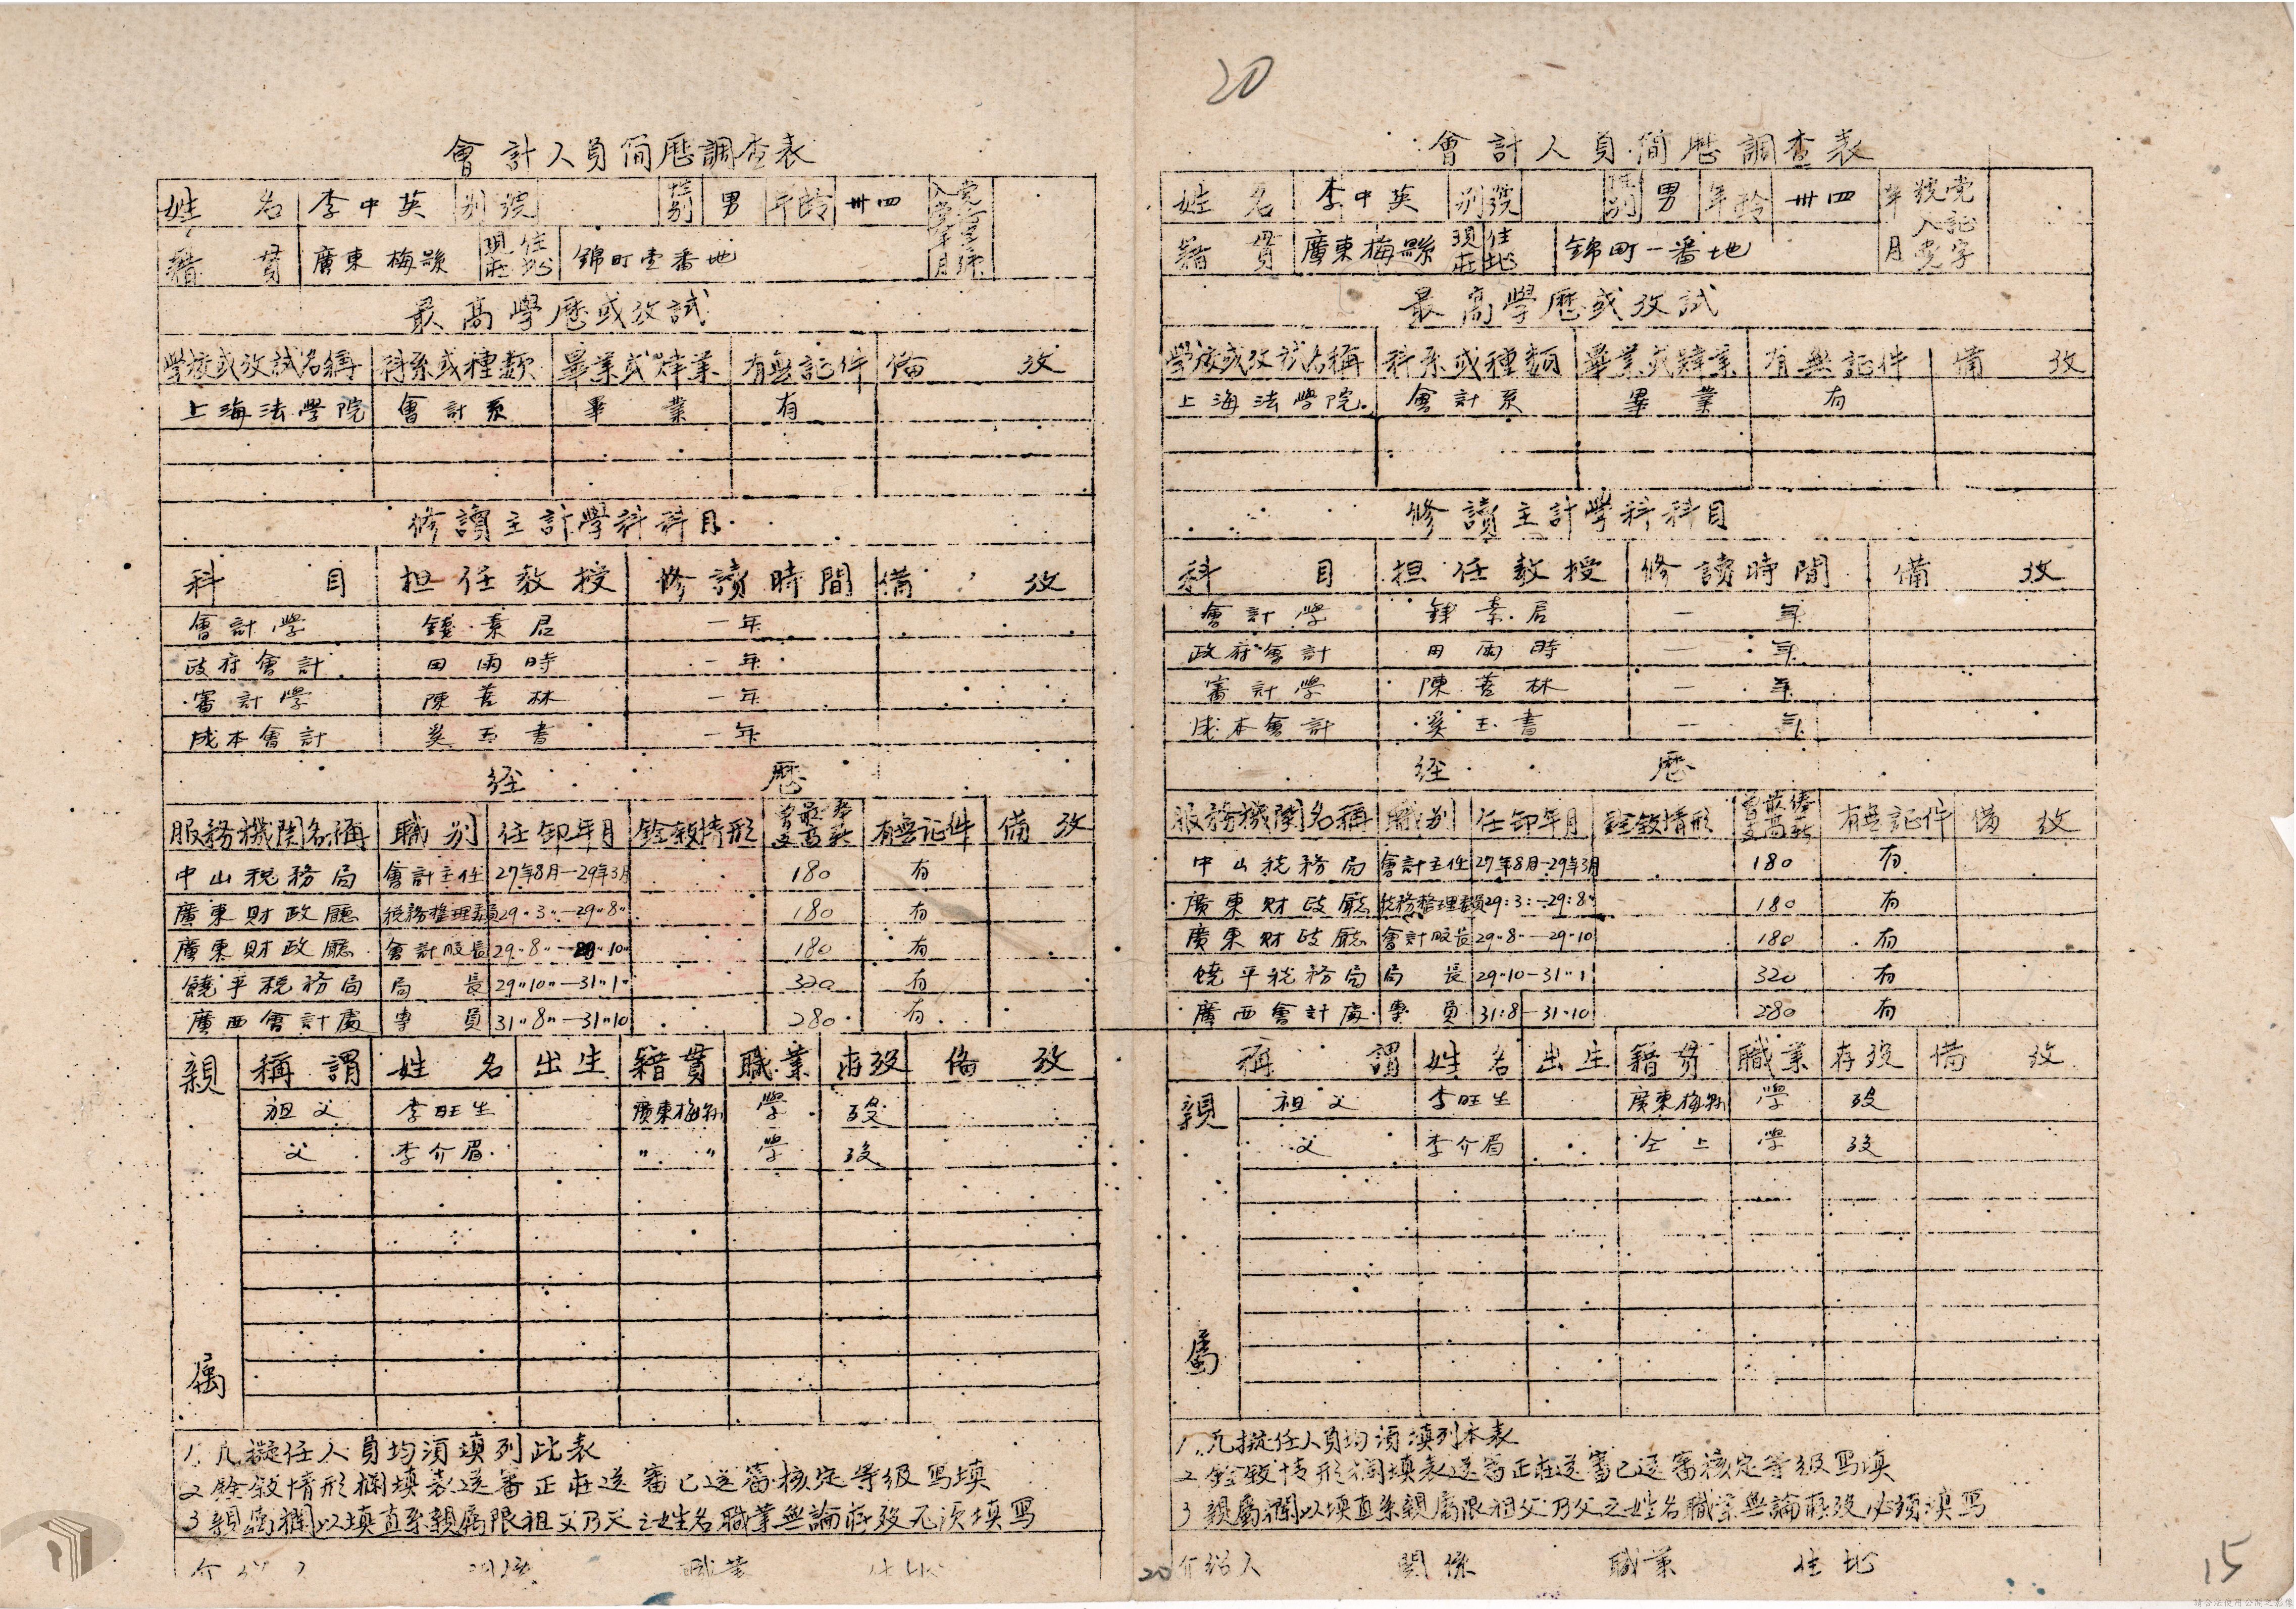 20
會計人員簡歷調查表
姓名 李中英 別號 性別 男 年齡 卅四
籍貫 廣東梅縣 現在住地 錦町壹番地
最高學歷或攷試
學校或攷試名稱 科系或種類 畢業或肄業 有無証件 備攷
上海法學院 會計系 畢業 有
修讀主計學科科目
科目 担任教授 修讀時間 備攷
會計學 錢素君 一年
政府會計 田雨時 一年
審計學 陳善林 一年
成本會計 奚玉書 一年
經歷
服務機関名稱 職別 任卸年月 銓敘情形 曾支最高俸薪 有無証件 備攷
中山稅務局 會計主任 27年8月-29年3月 180 有
廣東財政廳 稅務整理委員 29〃3〃-29〃8〃 180 有
廣東財政廳 會計股長 29〃8〃-29〃10〃 180 有
饒平稅務局 局長 29〃10〃-31〃1〃 320 有
廣西會計處 專員 31〃8〃-31〃10 280 有
親屬 稱謂 姓名 出生 籍貫 職業 存歿 備攷
祖父 李旺生 廣東梅縣 學 歿
父 李介眉 〃 〃 學 歿
1. 凡擬任人員均須填列此表
2 銓敘情形欄填表送審正在送審已送審核定等級寫填
3 親屬欄以填直系親屬限祖父乃父之姓名職業無論存歿 須填寫
職業
會計人員簡歷調查表
姓名 李中英 別號 性別 男 年齡 卅四 党証字號入党年月
籍貫 廣東梅縣 現在住地 錦町一番地
最高學歷或攷試
學校或攷試名稱 科系或種類 畢業或肄業 有無証件 備攷
上海法學院 會計系 畢業 有
修讀主計學科科目
科目 担任教授 修讀時間 備攷
會計學 錢素君 一年
政府會計 田雨時 一年
審計學 陳善林 一年
成本會計 奚玉書 一年
經歷
服務機関名稱 職別 任卸年月 銓敘情形 曾支最高俸薪 有無証件 備攷
中山稅務局 會計主任 27年8月-29年3月 180 有
廣東財政廳 稅務整理委員 29:3:-29:8〃 180 有
廣東財政廳 會計股長 29〃8〃-29〃10 180 有
饒平稅務局 局長 29〃10-31〃1 320 有
廣西會計處 專員 31:8-31·10 280 有
親屬 稱謂 姓名 出生 籍貫 職業 存歿 備攷
祖父 李旺生 廣東梅縣 學 歿
父 李介眉 仝上 學 歿
1. 凡擬任人員均須填列本表
2 銓敘情形欄填表送審正在送審已送審核定等級寫填
3 親屬欄以填直系親屬限祖父乃父之姓名職業無論存歿必須填寫
20 介紹人 関係 職業 住地
15
請合法使用公開之影像